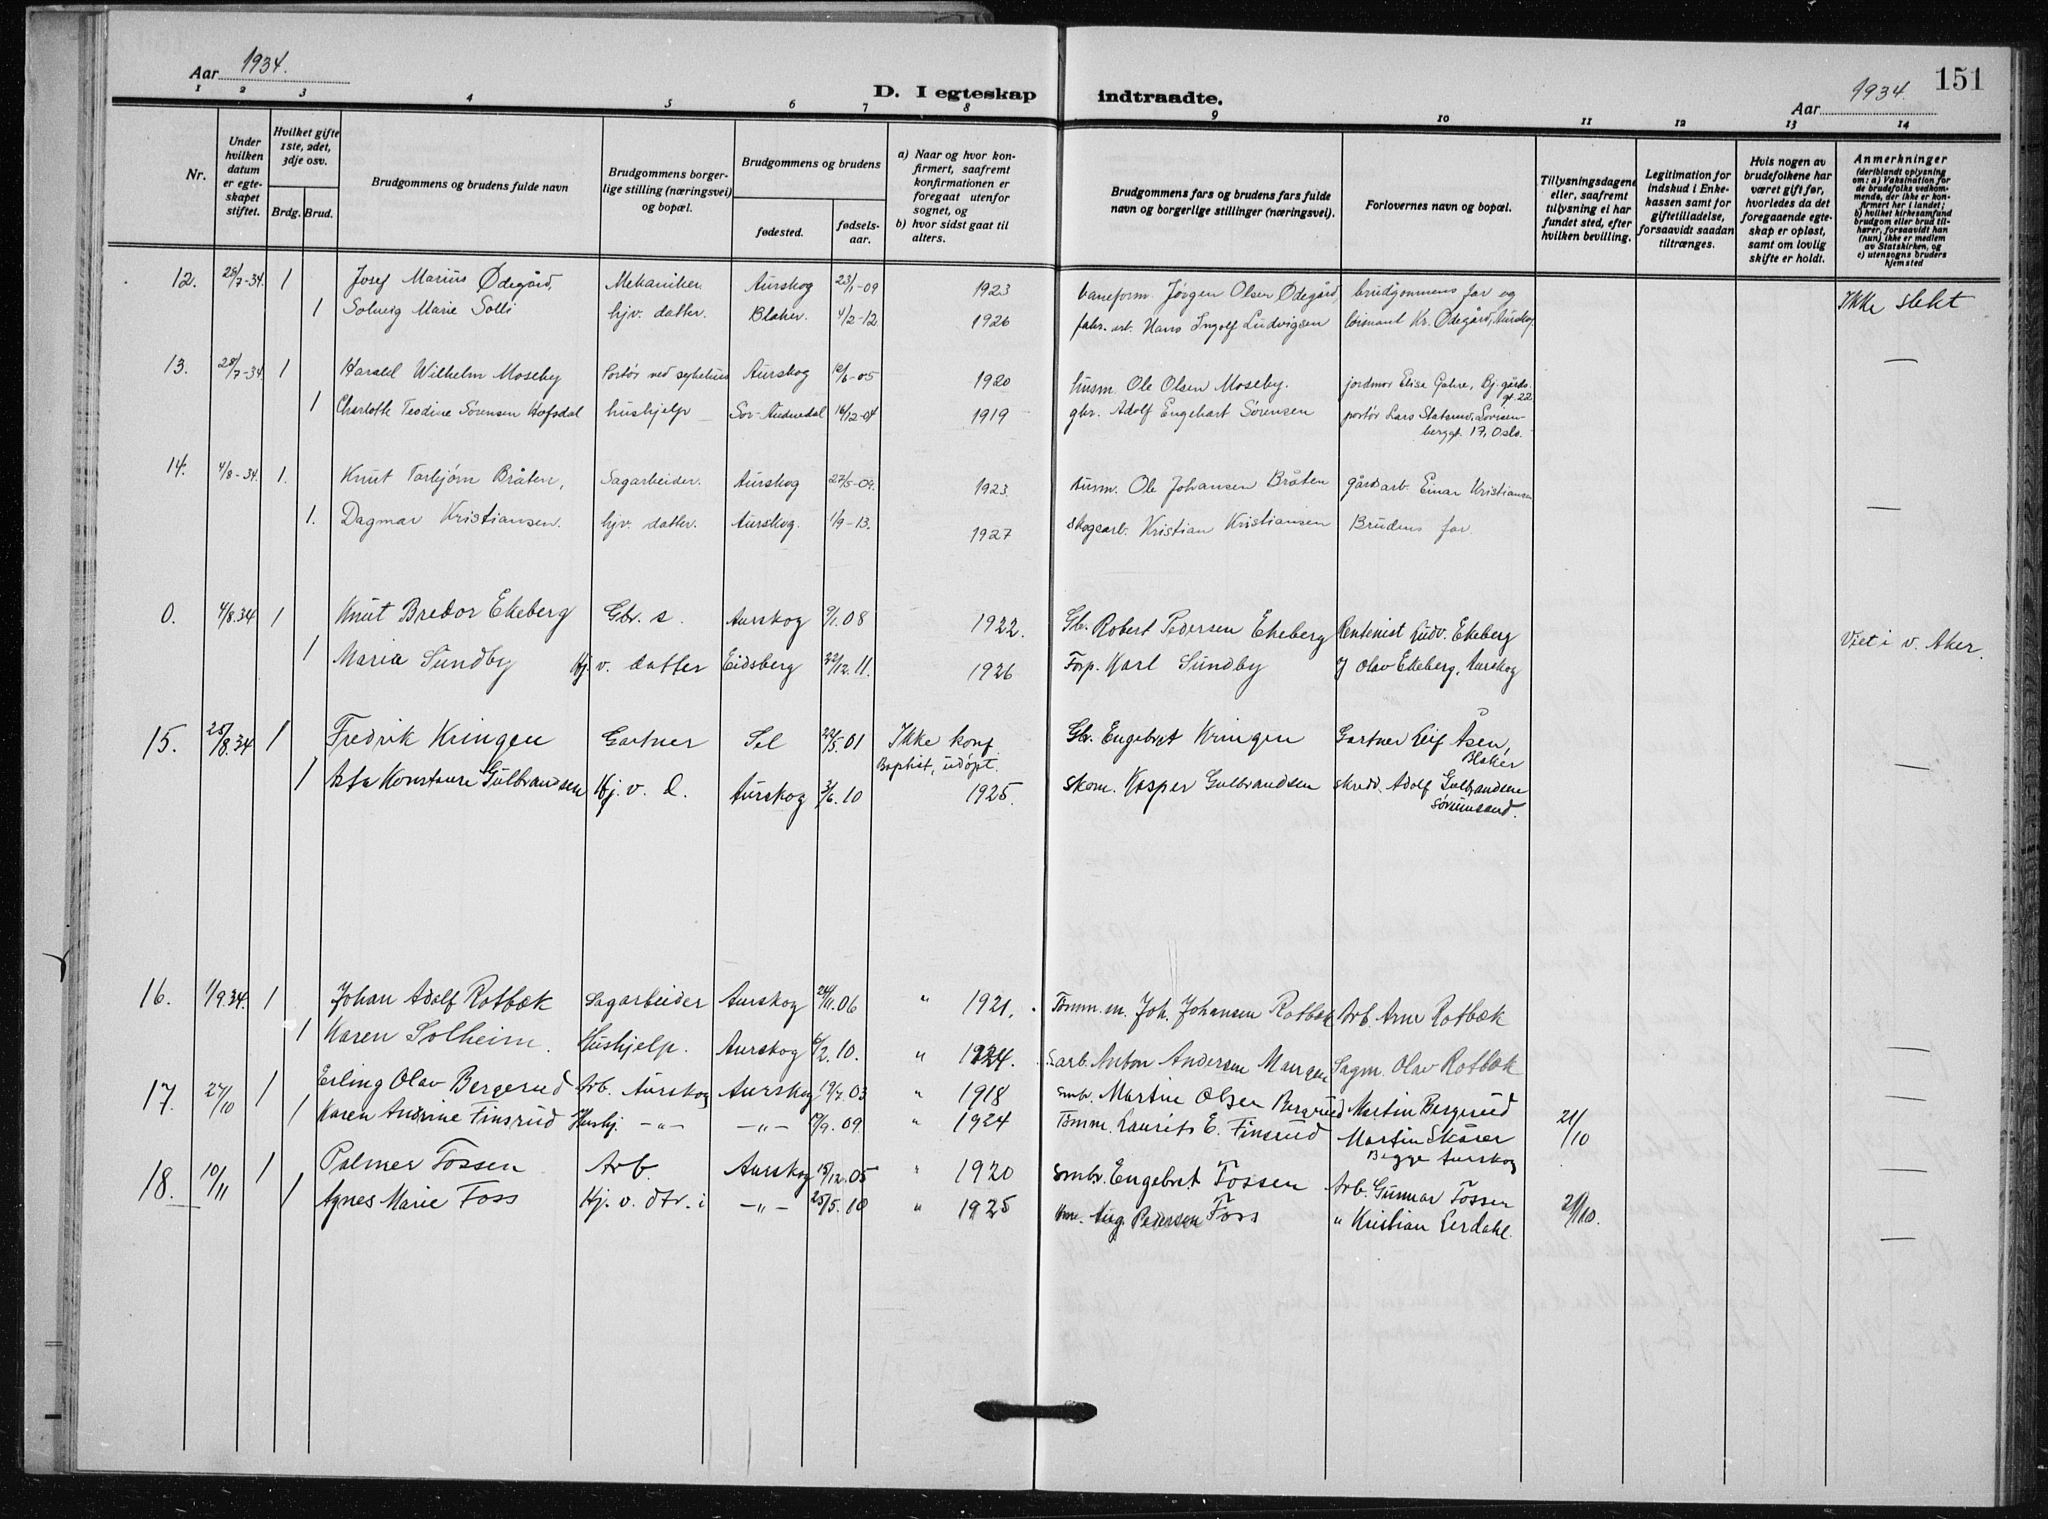 Aar 1934.
D. I egteskap indtraadte.
Aar 1934. 151
1 2 3 4 5 6 7 8 9 10 11 12 13 14
Nr.
Under hvilken datum er egteskapet stiftet.
Hvilket gifte 1ste, 2det, 3dje osv.
Brdg. Brud.
Brudgommens og brudens fulde navn
Brudgommens borgerlige stilling (næringsvei) og bopæl.
Brudgommens og brudens
fødested. fødselsaar.
a) Naar og hvor konfirmert, saafremt konfirmationen er foregaat utenfor sognet, og
b) hvor sidst gaat til alters.
Brudgommens fars og brudens fars fulde navn og borgerlige stillinger (næringsvei).
Forlovernes navn og bopæl.
Tillysningsdagene eller, saafremt tillysning ei har fundet sted, efter hvilken bevilling.
Legitimation for indskud i Enkekassen samt for giftetilladelse, forsaavidt saadan tiltrænges.
Hvis nogen av brudefolkene har været gift før, hvorledes da det foregaaende egteskap er opløst, samt om lovlig skifte er holdt.
Anmerkninger (deriblandt oplysning om: a) Vaksination for de brudefolks vedkommende, der ikke er konfirmert her i landet; b) hvilket kirkesamfund brudgom eller brud tilhører, forsaavidt han (hun) ikke er medlem av Statskirken, og c) utensogns bruders hjemsted
12. 28/7-34 1 Josef Marius Ødegård, Mekaniker Aurskog 23/1-09 1923 baneform. Jørgen Olsen Ødegård, brudgommens far og
1 Solveig Marie Solli hjv. datter. Blaker. 4/2-12. 1926 fabr. arb. Hans Ingolf Ludvigsen løisnant Kr. Ødegård, Aurskog. Ikke slekt
13. 28/7-34 1 Harald Wilhelm Moseby Portør ved sykehus Aurskog 12/6-05 1920 husm. Ole Olsen Moseby. jordmor Elise Gahre, Bj. gårds gt. 22 —
1 Charlotte Teodine Sørensen Hofsdal hushjelp Sør-Audnedal 16/12-04 1919 gbr. Adolf Engebart Sørensen portør Lars Statsun, Lovisenberggt. 17, Oslo.
14. 4/8-34. 1. Knut Torbjørn Bråten, Sagarbeider. Aurskog 27/5-09. 1923. husm. Ole Johansen Bråten gårdsarb. Einar Kristiansen
1. Dagmar Kristiansen. hjv. datter. Aurskog. 1/9-13. 1927 skogsarb. Kristian Kristiansen Brudens far. —
0. 4/8.34 1 Knut Bredor Ekeberg Gbr. s. Aurskog 9/1.08 1922. Gb. Robert Pedersen Ekeberg Rentenist Ludv. Ekeberg
1 Maria Sundby Hj. v. datter Eidsberg 22/12.11. 1926 Forp. Karl Sundby og Olav Ekeberg, Aurskog Viet i v. Aker.
15. 25/8.34 1 Fredrik Kringen Gartner Sel 22/5.01 Ikke konf. Baptist, udøpt. Gb. Engebret Kringen Gartner Leif Åsen, Blaker
1 Asta Konstanse Gulbrandsen Hj. v. d. Aurskog 3/6.10 1925. Skom. Kasper Gulbrandsen skredd. Adolf Gulbrandsen Sørumsand. —
16. 1/9.34. 1 Johan Adolf Rotbæk Sagarbeider Aurskog 24/11.06 " 1921. Tømm.m. Joh. Johansen Rotbæk Arb. Arne Rotbæk
1 Karen Solheim. Hushjelp. Aurskog 6/2.10. " 1924. Sarb. Anton Andersen Mangen Sagm. Olav Rotbæk —
17. 27/10 1 Erling Olav Bergerud Arb. Aurskog Aurskog 19/7.03 " 1918 smbr. Martin Olsen Bergerud Martin Bergerud
1 Karen Andrine Finsrud Hushj. —"— —"— 17/9.09. " 1924 Tømm. Laurits E. Finsrud Martin Skårer Begge Aurskog 21/10 —
18. 10/11 1 Palmer Fossen Arb. Aurskog 15/12.05 " 1920 smbr. Engebret Fossen Arb. Gunnar Fossen —
1 Agnes Marie Foss Hj. v. dtr. i —"— 25/5.10 " 1925 Aug Pedersen Foss " Kristian Lerdahl. 21/10. —